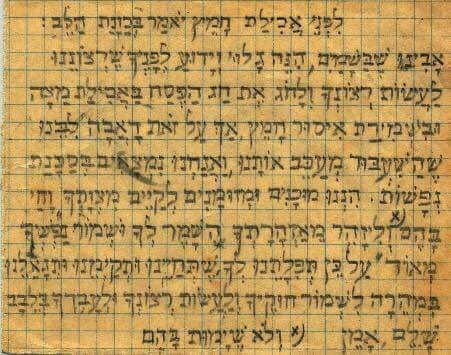 לִפְנֵי אֲכִילַת חָמֵץ יֹאמַר בְּכַוָּנַת הַלֵּב:
אָבִינוּ שֶׁבַּשָּׁמַיִם, הִנֵּה גָלוּי וְיָדוּעַ לְפָנֶיךָ שֶׁרְצוֹנֵנוּ
לַעֲשׂוֹת רְצוֹנְךָ וְלָחֹג אֶת חַג הַפֶּסַח בַּאֲכִילַת מַצָּה
וּבִשְׁמִירַת אִיסוּר חָמֵץ, אַךְ עַל זֹאת דָּאֲבָה לִבֵּנוּ
שֶׁהַשִּׁעְבּוּד מְעַכֵּב אוֹתָנוּ, וַאֲנַחְנוּ נִמְצָאִים בְּסַכָּנַת
נְפָשׁוֹת. הִנְנוּ מוּכָנִים וּמְזוּמָּנִים לְקַיֵּים מִצְוֹתֶיךָ וָחַי
בָּהֶם א) וְלִיזָּהֵר מֵאַזְהָרָתְךָ הִשָּׁמֶר לְךָ וּשְׁמוֹר נַפְשְׁךָ
מְאוֹד עַל כֵּן תְּפִלָּתֵנוּ לְךָ שֶׁתְּחַיֵּינוּ וּתְקַיְּמֵנוּ וְתִגְאָלֵנוּ
בִּמְהֵרָה לִשְׁמוֹר חוּקֶיךָ וְלַעֲשׂוֹת רְצוֹנְךָ וּלְעָבְדְךָ בְּלֵבָב
שָׁלֵם, אָמֵן א) וְלֹא שֶׁיָּמוּת בָּהֶם